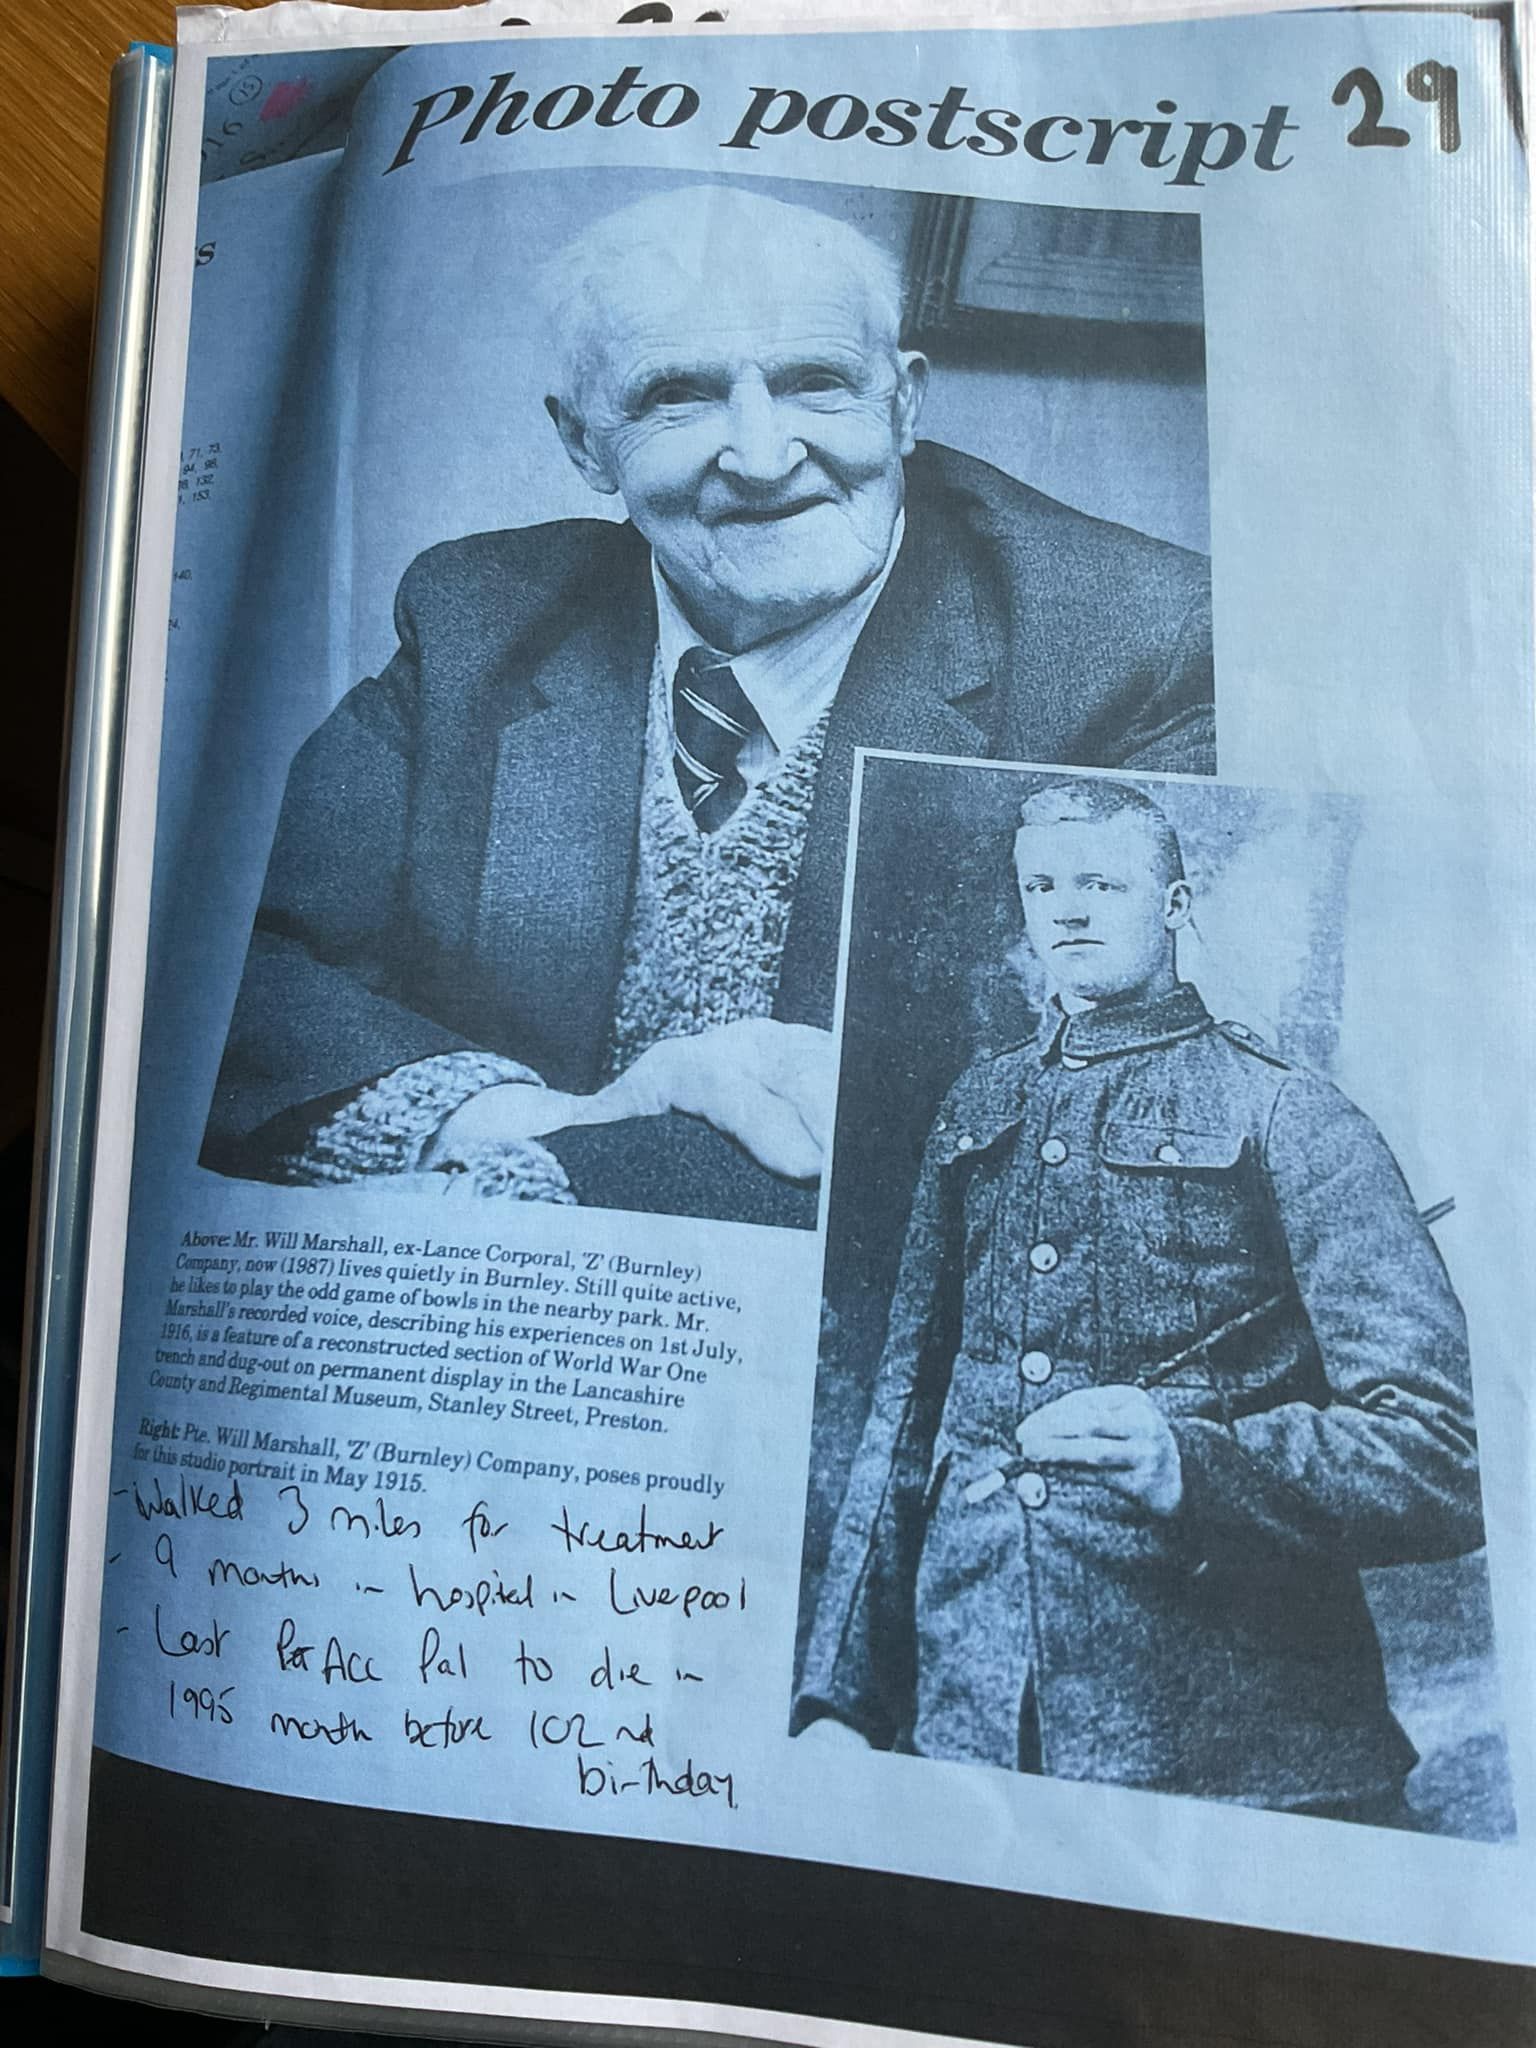 Photo postscript 29
15
s
71, 73,
94, 98,
132,
153,
140,
Above: Mr. Will Marshall, ex-Lance Corporal, 'Z' (Burnley)
Company, now (1987) lives quietly in Burnley. Still quite active,
he likes to play the odd game of bowls in the nearby park. Mr.
Marshall's recorded voice, describing his experiences on 1st July,
1916, is a feature of a reconstructed section of World War One
trench and dug-out on permanent display in the Lancashire
County and Regimental Museum, Stanley Street, Preston.
Right: Pte. Will Marshall, 'Z' (Burnley) Company, poses proudly
for this studio portrait in May 1915.
- Walked 3 miles for treatment
- 9 months in hospital in Liverpool
- Last Acc Pal to die in
1995 month before 102nd
birthday.